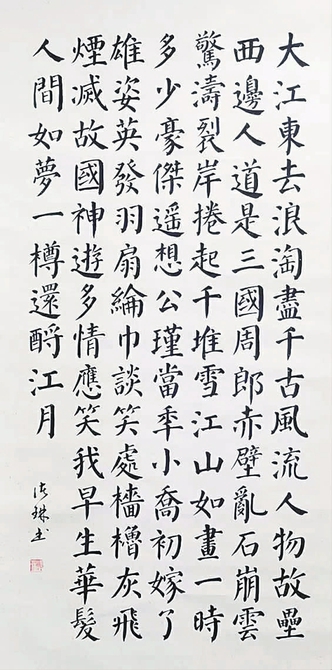 大江東去浪淘盡千古風流人物故壘
西邊人道是三國周郎赤壁亂石崩雲
驚濤裂岸捲起千堆雪江山如畫一時
多少豪傑遥想公瑾當秊小喬初嫁了
雄姿英發羽扇綸巾談笑處檣櫓灰飛
煙滅故國神遊多情應笑我早生華髮
人間如夢一樽還酹江月
琳书